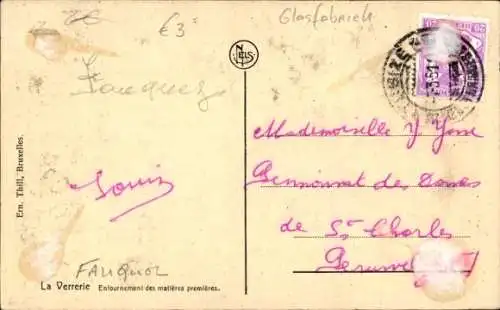 €3
Glasfabriek
NELS
Fauquez
Louis
FAUQUEZ
Ern. Thill, Bruxelles.
La Verrerie Enfournement des matières premières.
Mademoiselle Y
Pensionnat des Dames
de St Charles